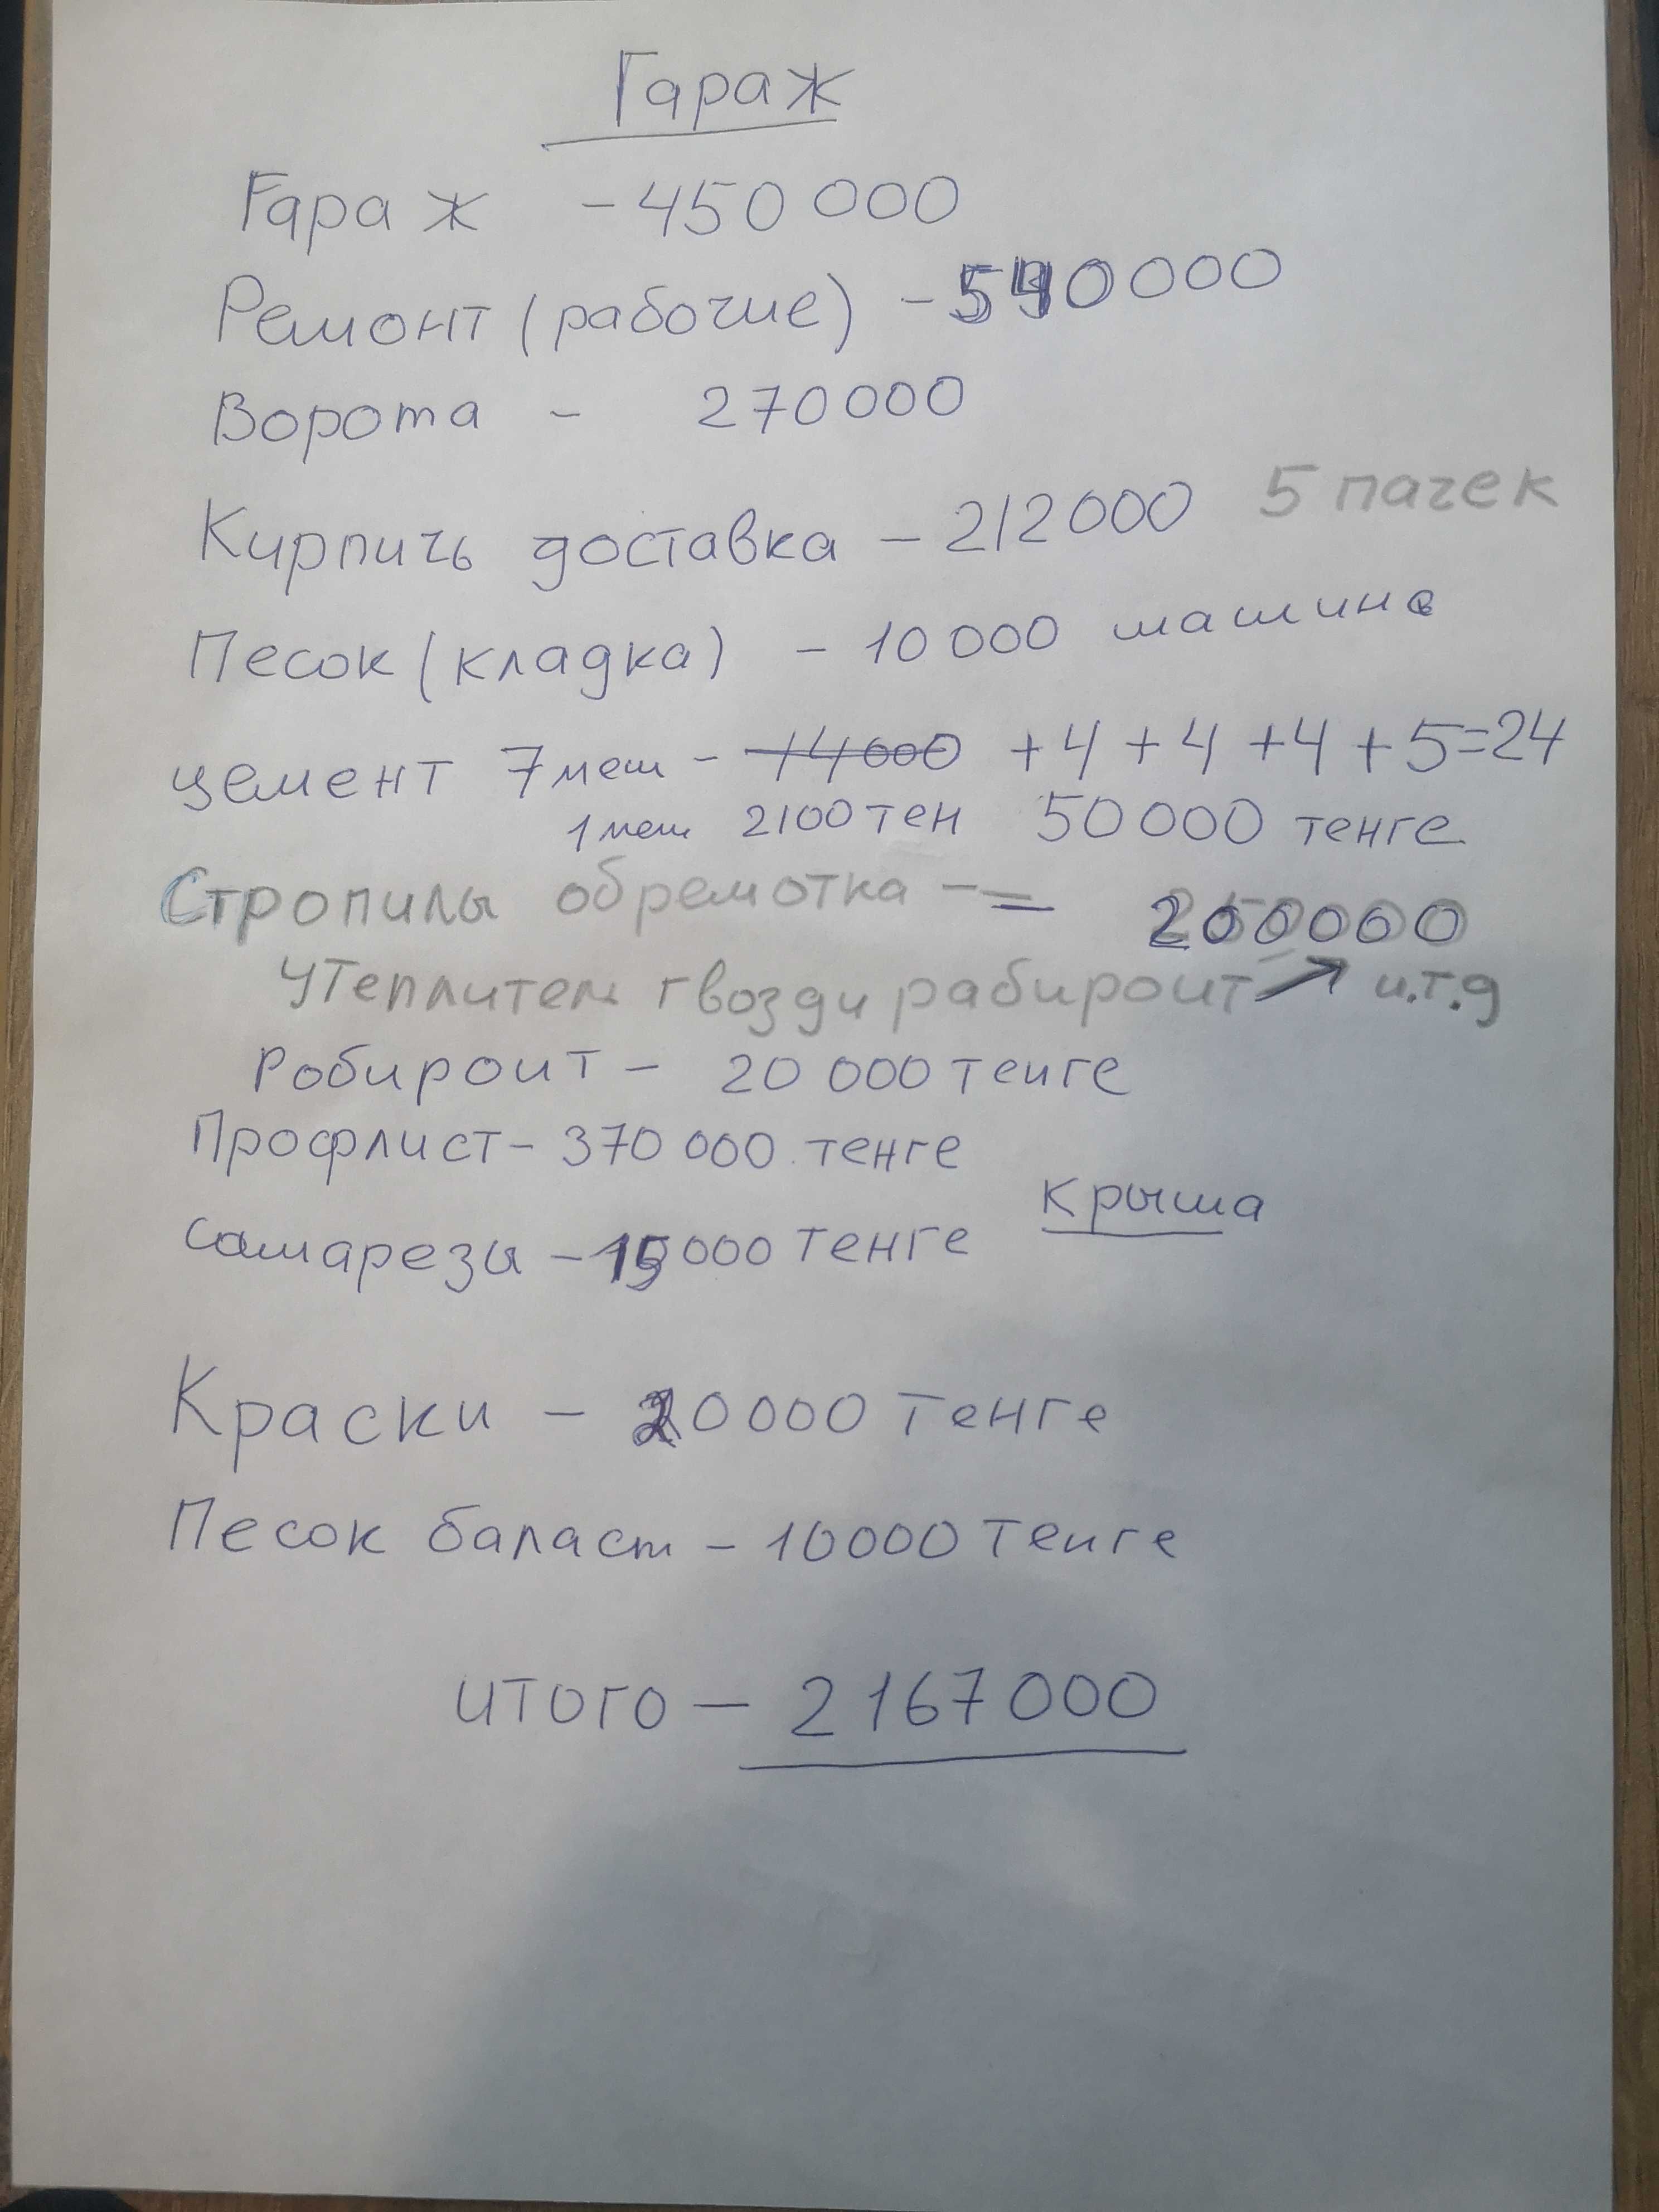 Гараж
Гараж - 450 000
Ремонт (рабочие) - 540000
Ворота - 270000
Кирпичь доставка - 212000 5 пачек
Песок (кладка) - 10 000 машина
цемент 7 меш - 14000 + 4 + 4 + 4 + 5 = 24
1 меш 2100 тен 50 000 тенге
Стропилы обремотка - = 200000
Утеплител гвозди рабироит и.т.д
Робироит - 20 000 тенге
Профлист - 370 000 тенге
Крыша
Самарезы - 15000 тенге
Краски - 20000 тенге
Песок баласт - 10000 тенге
итого - 2167000